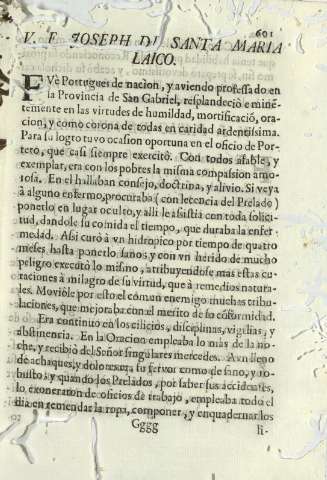 601
V. F. JOSEPH DE SANTA MARIA
LAICO.
FVè Portugues de nacion, y aviendo professado en
la Provincia de San Gabriel, resplandeciò eminẽ-
temente en las virtudes de humildad, mortificació, ora
cion, y como corona de todas en caridad ardentissima.
Para su logro tuvo ocasion oportuna en el oficio de Por-
tero, que casi siempre exercitò. Con todos afable, y
exemplar, era con los pobres la misma compassion amo
rosa. En el hallaban consejo, doctrina, y alivio. Si veya
à alguno enfermo, procuraba (con lecencia del Prelado)
ponerlo en lugar oculto, y alli le asistia con toda solici-
tud, dandole su comida el tiempo, que duraba la enfer-
medad. Assi curò à vn hidropico por tiempo de quatro
meses hasta ponerlo sano, y con vn herido de mucho
peligro executò lo mismo, atribuyendose mas estas cu-
raciones à milagro de su virtud, que à remedios natura-
les. Moviòle por esto el comun enemigo muchas tribu-
laciones, que mejoraba con el merito de su cõformidad.
Era continuo en los cilicios, disciplinas, vigilias, y
abstinencia. En la Oracion empleaba lo màs de la no-
che, y recibiò del Señor singulares mercedes. Aun lleno
de achaques, y dolores, era su fervor como de sano, y ro-
busto: y quando los Prelados, por saber sus accidentes,
lo exoneraron de oficios de trabajo, empleaba todo el
dia en remendar la ropa, componer, y enquadernar los
Gggg
li-